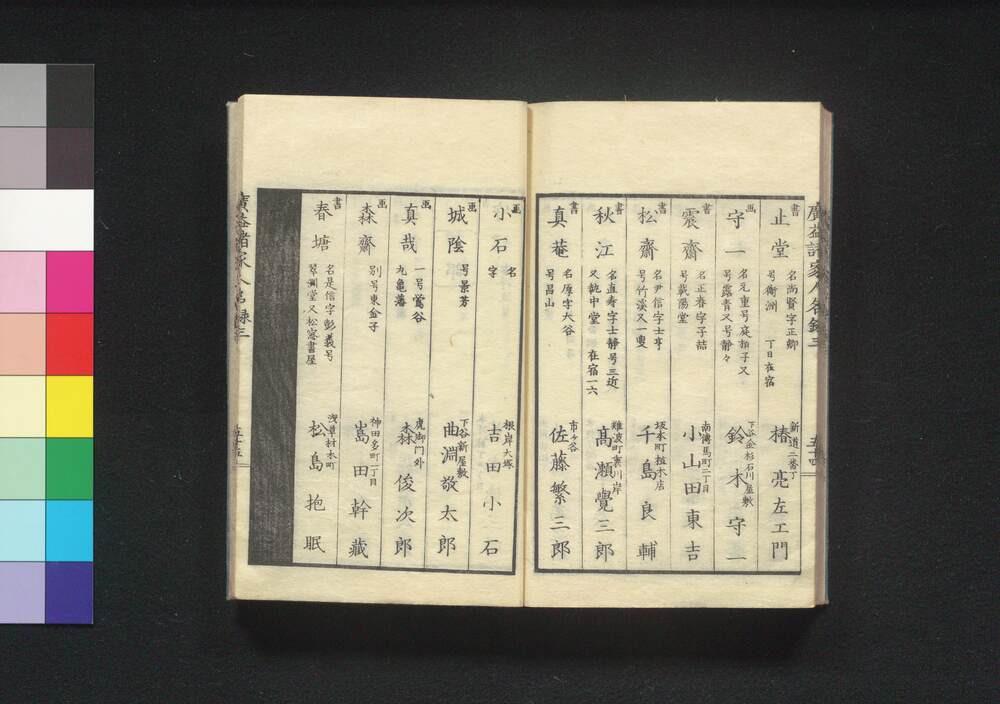 廣益諸家人名録三
五十四
書
止堂
名尚賢字正卿
号衛洲
丁目在宿
新道二番丁
椿亮左エ門
画
守一
名元重号庭柏子又
号露青又号静々
下谷金杉石川屋敷
鈴木守一
書
震齋
名正春字子喆
号載陽堂
南傳馬町二丁目
小山田東吉
書
松齋
名尹信字士亨
号竹溪又一叟
坂本町植木店
千島良輔
書
秋江
名直寿字士静号三近
又執中堂
在宿一六
難波町裏川岸
髙瀬覺三郎
書
真菴
名厚字大谷
号昌山
市ヶ谷
佐藤繁三郎
画
小石
名
字
根岸大塚
吉田小石
画
城陰
号景芳
下谷新屋敷
曲淵敬太郎
画
真哉
一号鶯谷
九亀藩
虎御門外
森俊次郎
画
森齋
別号東金子
神田多町二丁目
嶌田幹藏
書
春塘
名是信字彭義号
翠淵堂又松窓書屋
浅草材木町
松島抱眠
廣益諸家人名録三
五十五